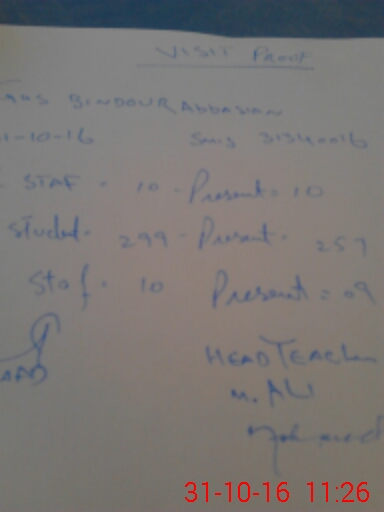 VISIT Proof
BINDOUR ABBASIAN
1-10-16 Smis 31340016
- STAF - 10 - Present = 10
Studed - 299 - Present - 257
Staf - 10 Present = 09
HEAD TEACHER
M. ALI
31-10-16 11:26